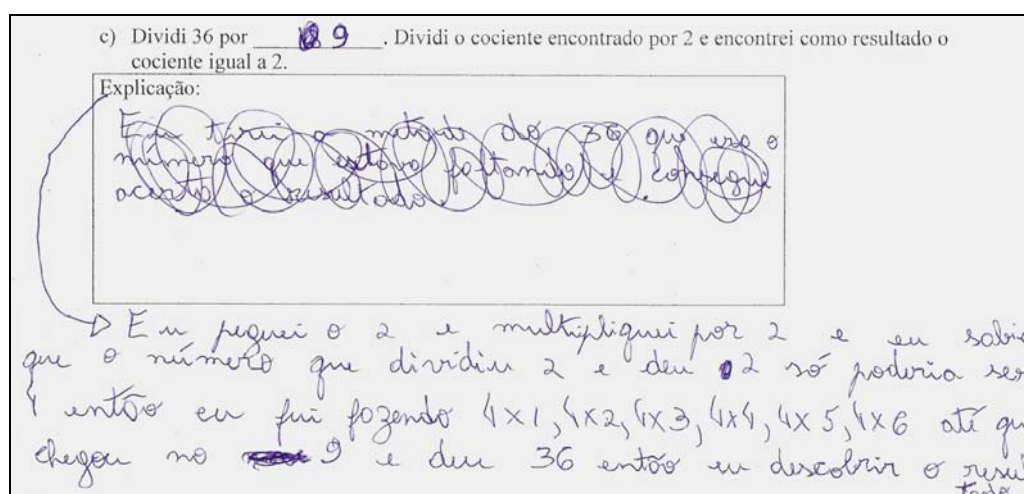 c) Dividi 36 por 9. Dividi o cociente encontrado por 2 e encontrei como resultado o
cociente igual a 2.
Explicação:
Eu tirei a metade do 36 que era o
número que estava faltando e consegui
acerta o resultado.
Eu peguei o 2 e multipliquei por 2 e eu sabia
que o número que dividiu 2 e deu 2 só poderia ser
4 então eu fui fazendo 4x1, 4x2, 4x3, 4x4, 4x5, 4x6 até que
chegou no 9 e deu 36 então eu descobrir o resul
tado